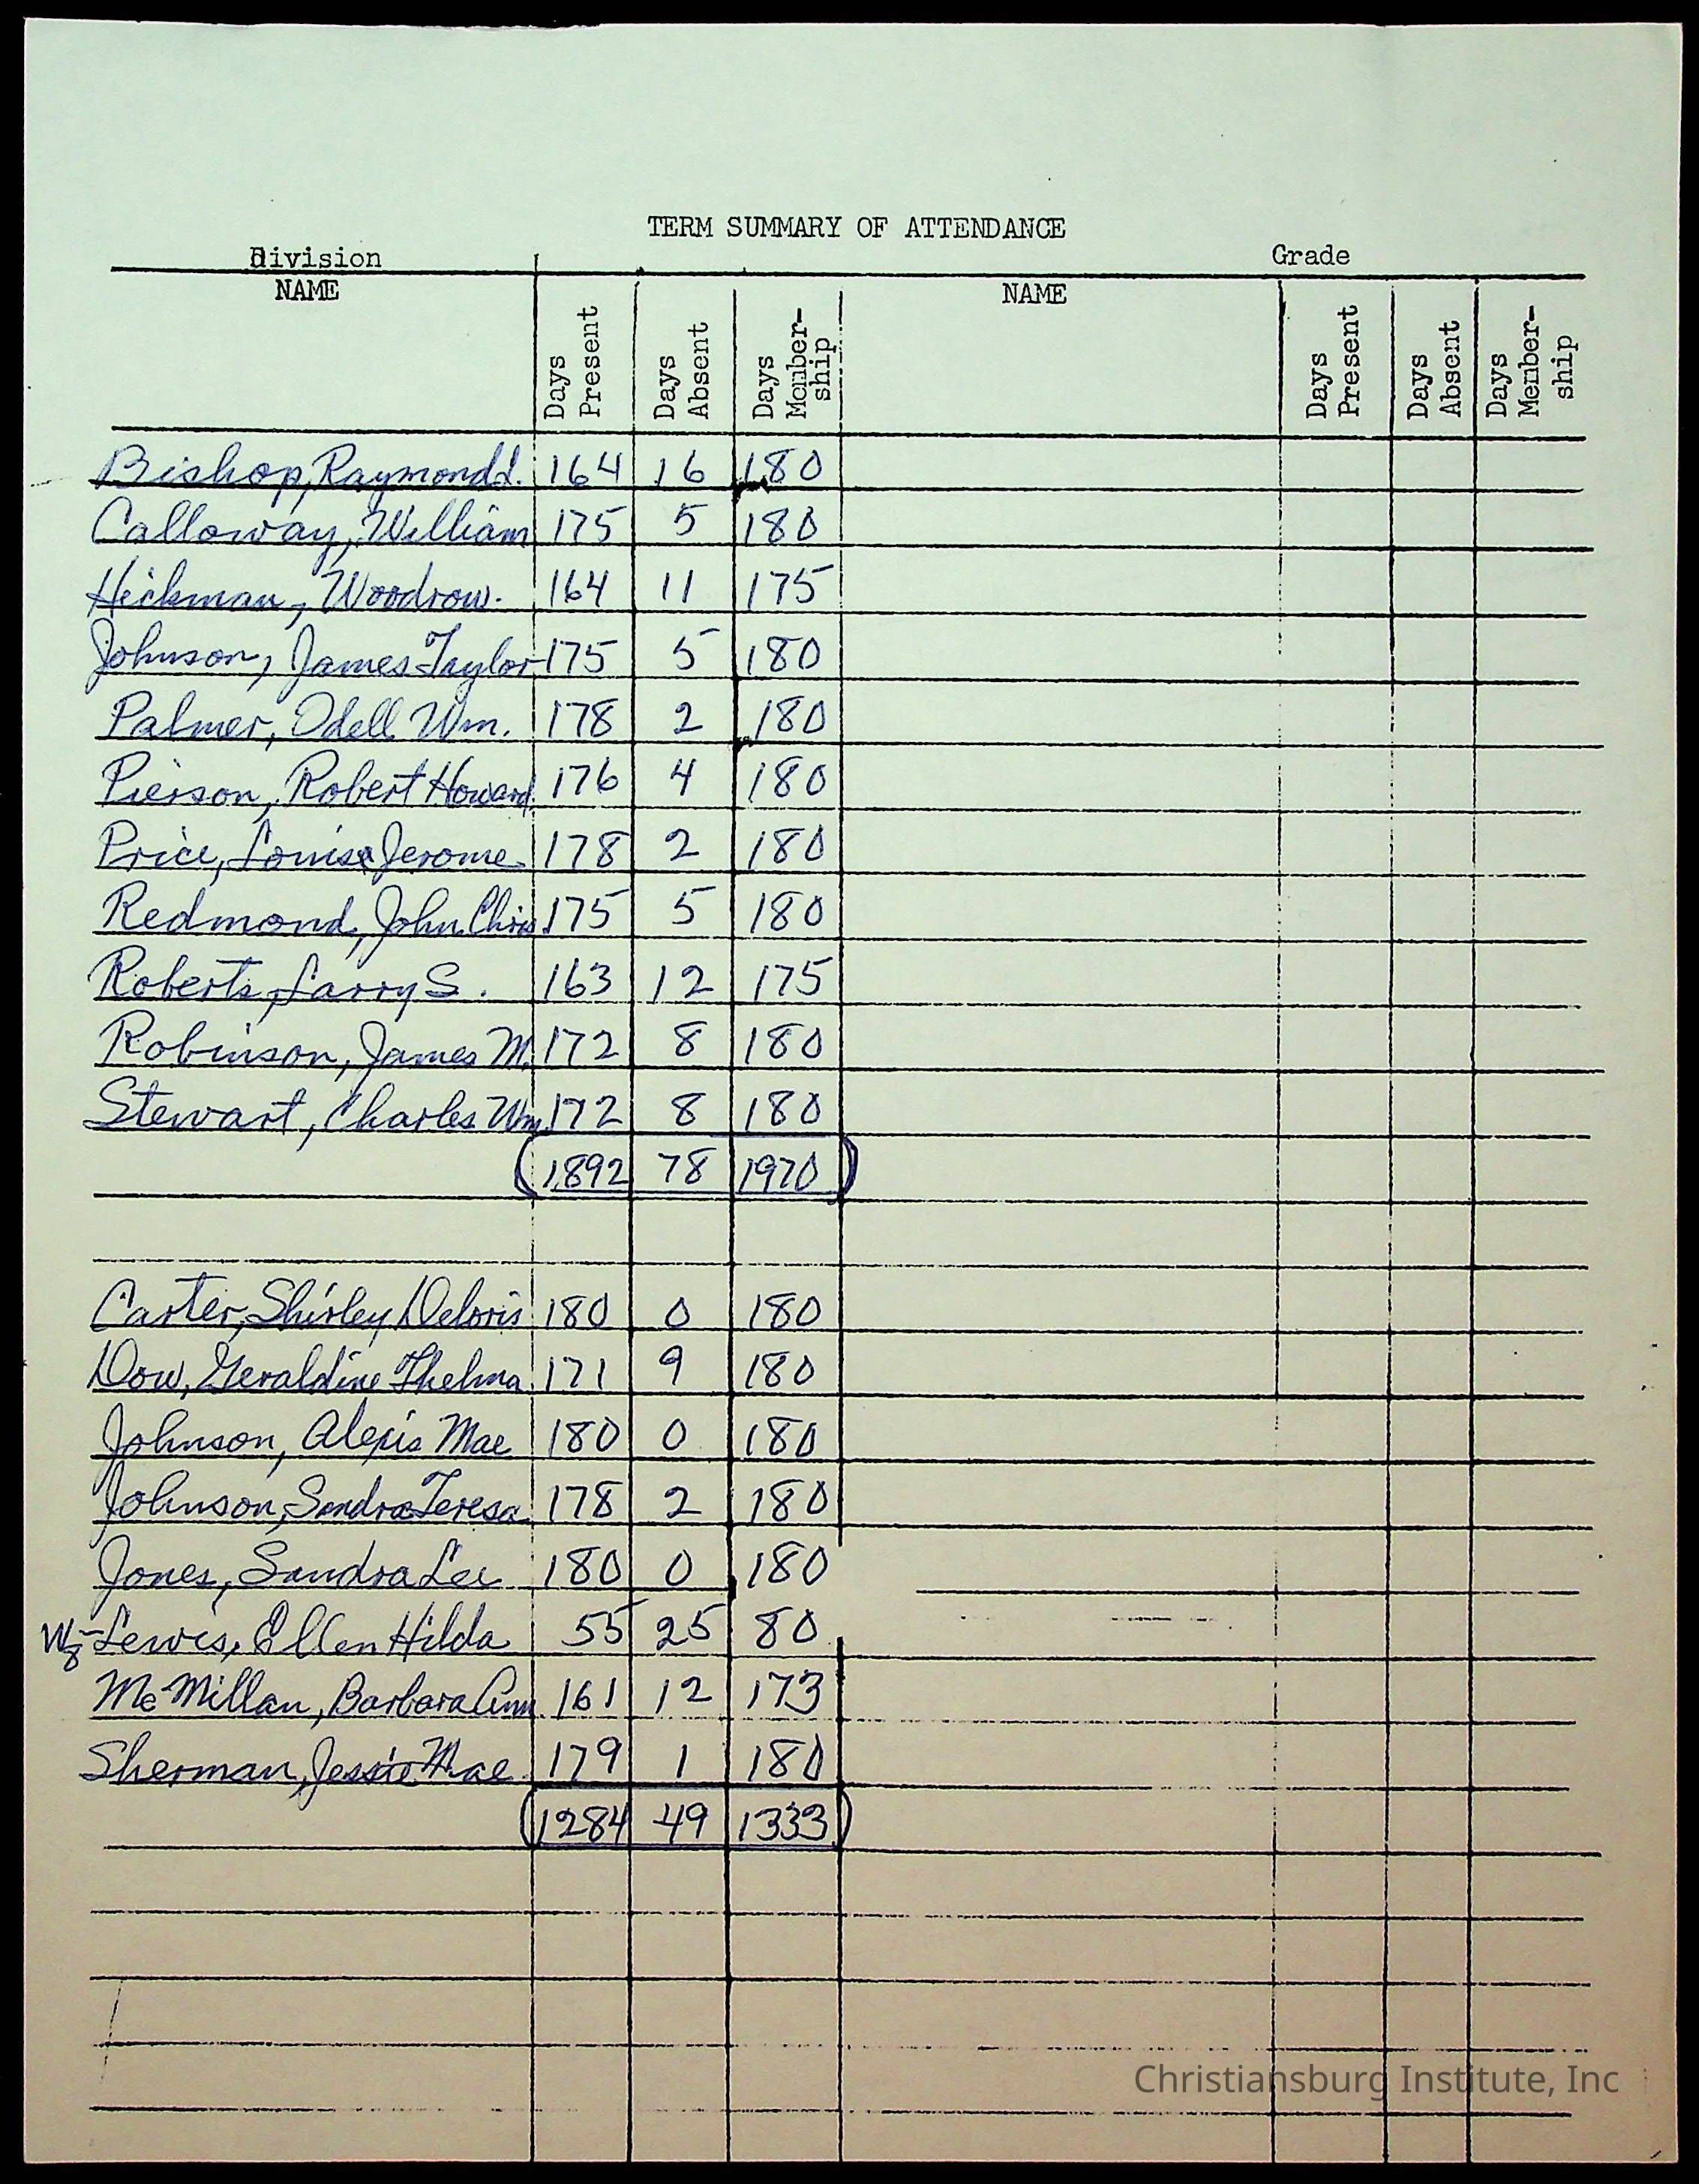 TERM SUMMARY OF ATTENDANCE
Division Grade
NAME Days Present Days Absent Days Member-ship NAME Days Present Days Absent Days Member-ship
Bishop, Raymond L. 164 16 180
Calloway, William 175 5 180
Hickman, Woodrow. 164 11 175
Johnson, James Taylor 175 5 180
Palmer, Odell Wm. 178 2 180
Pierson, Robert Howard 176 4 180
Price, Louise Jerome 178 2 180
Redmond, John Chris. 175 5 180
Roberts, Larry S. 163 12 175
Robinson, James M. 172 8 180
Stewart, Charles Wm. 172 8 180
(1892 78 1970)
Carter, Shirley Deloris 180 0 180
Dow, Geraldine Thelma 171 9 180
Johnson, Alexis Mae 180 0 180
Johnson, Sandra Teresa 178 2 180
Jones, Sandra Lee 180 0 180
W8- Lewis, Ellen Hilda 55 25 80
McMillan, Barbara Ann 161 12 173
Sherman, Jessie Mae 179 1 180
(1284 49 1333)
Christiansburg Institute, Inc